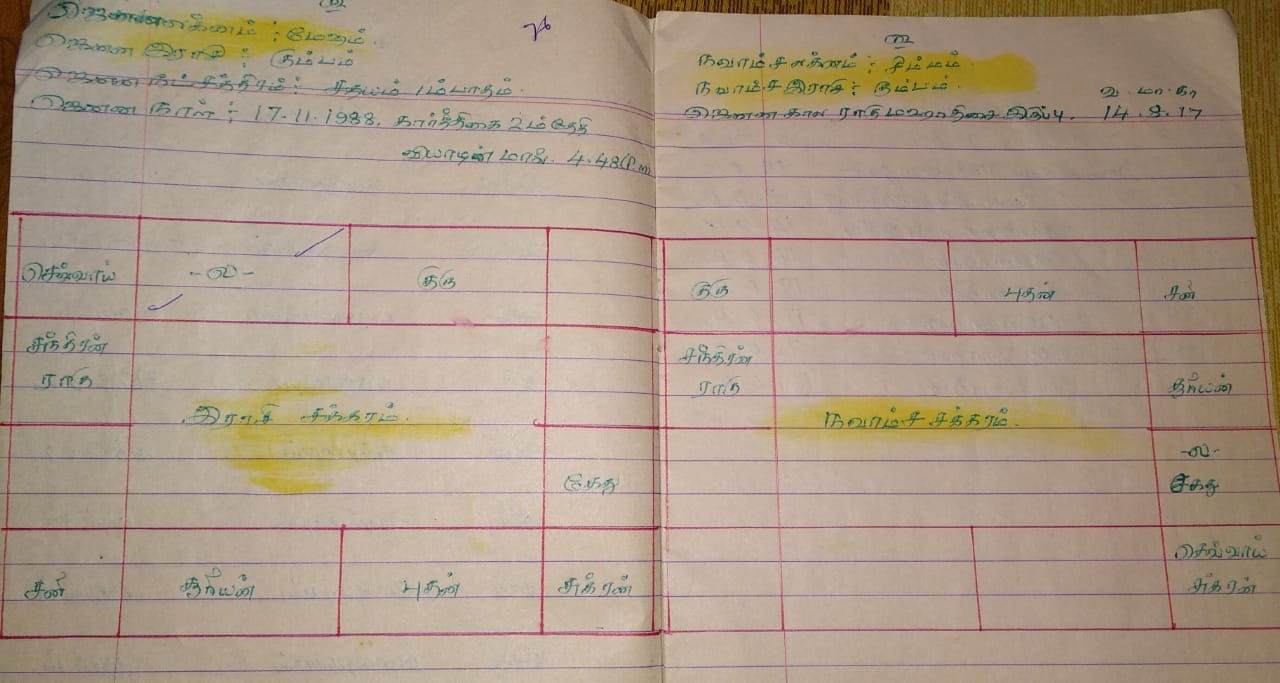 ஜெனன லக்னம் : மேஷம்.
ஜெனன இராசி : கும்பம்
ஜெனன நட்சத்திரம் : சதயம் 1ம்பாதம்.
ஜெனன நாள் : 17.11.1988. கார்த்திகை 2ம்தேதி
வியாழன் மாலை. 4.48(P.m)
செவ்வாய்
-ல-
குரு
சந்திரன்
ராகு
இராசி சக்கரம்.
கேது
சனி
சூரியன்
புதன்
சுக்ரன்
நவாம்ச லக்னம் : சிம்மம்.
நவாம்ச இராசி : கும்பம்.
வ. மா. நா
ஜெனன கால ராகுமஹாதிசை இருப்பு. 14.8.17
குரு
புதன்
சனி
சந்திரன்
ராகு
சூரியன்
நவாம்ச சக்கரம்.
-ல-
கேது
செவ்வாய்
சுக்ரன்